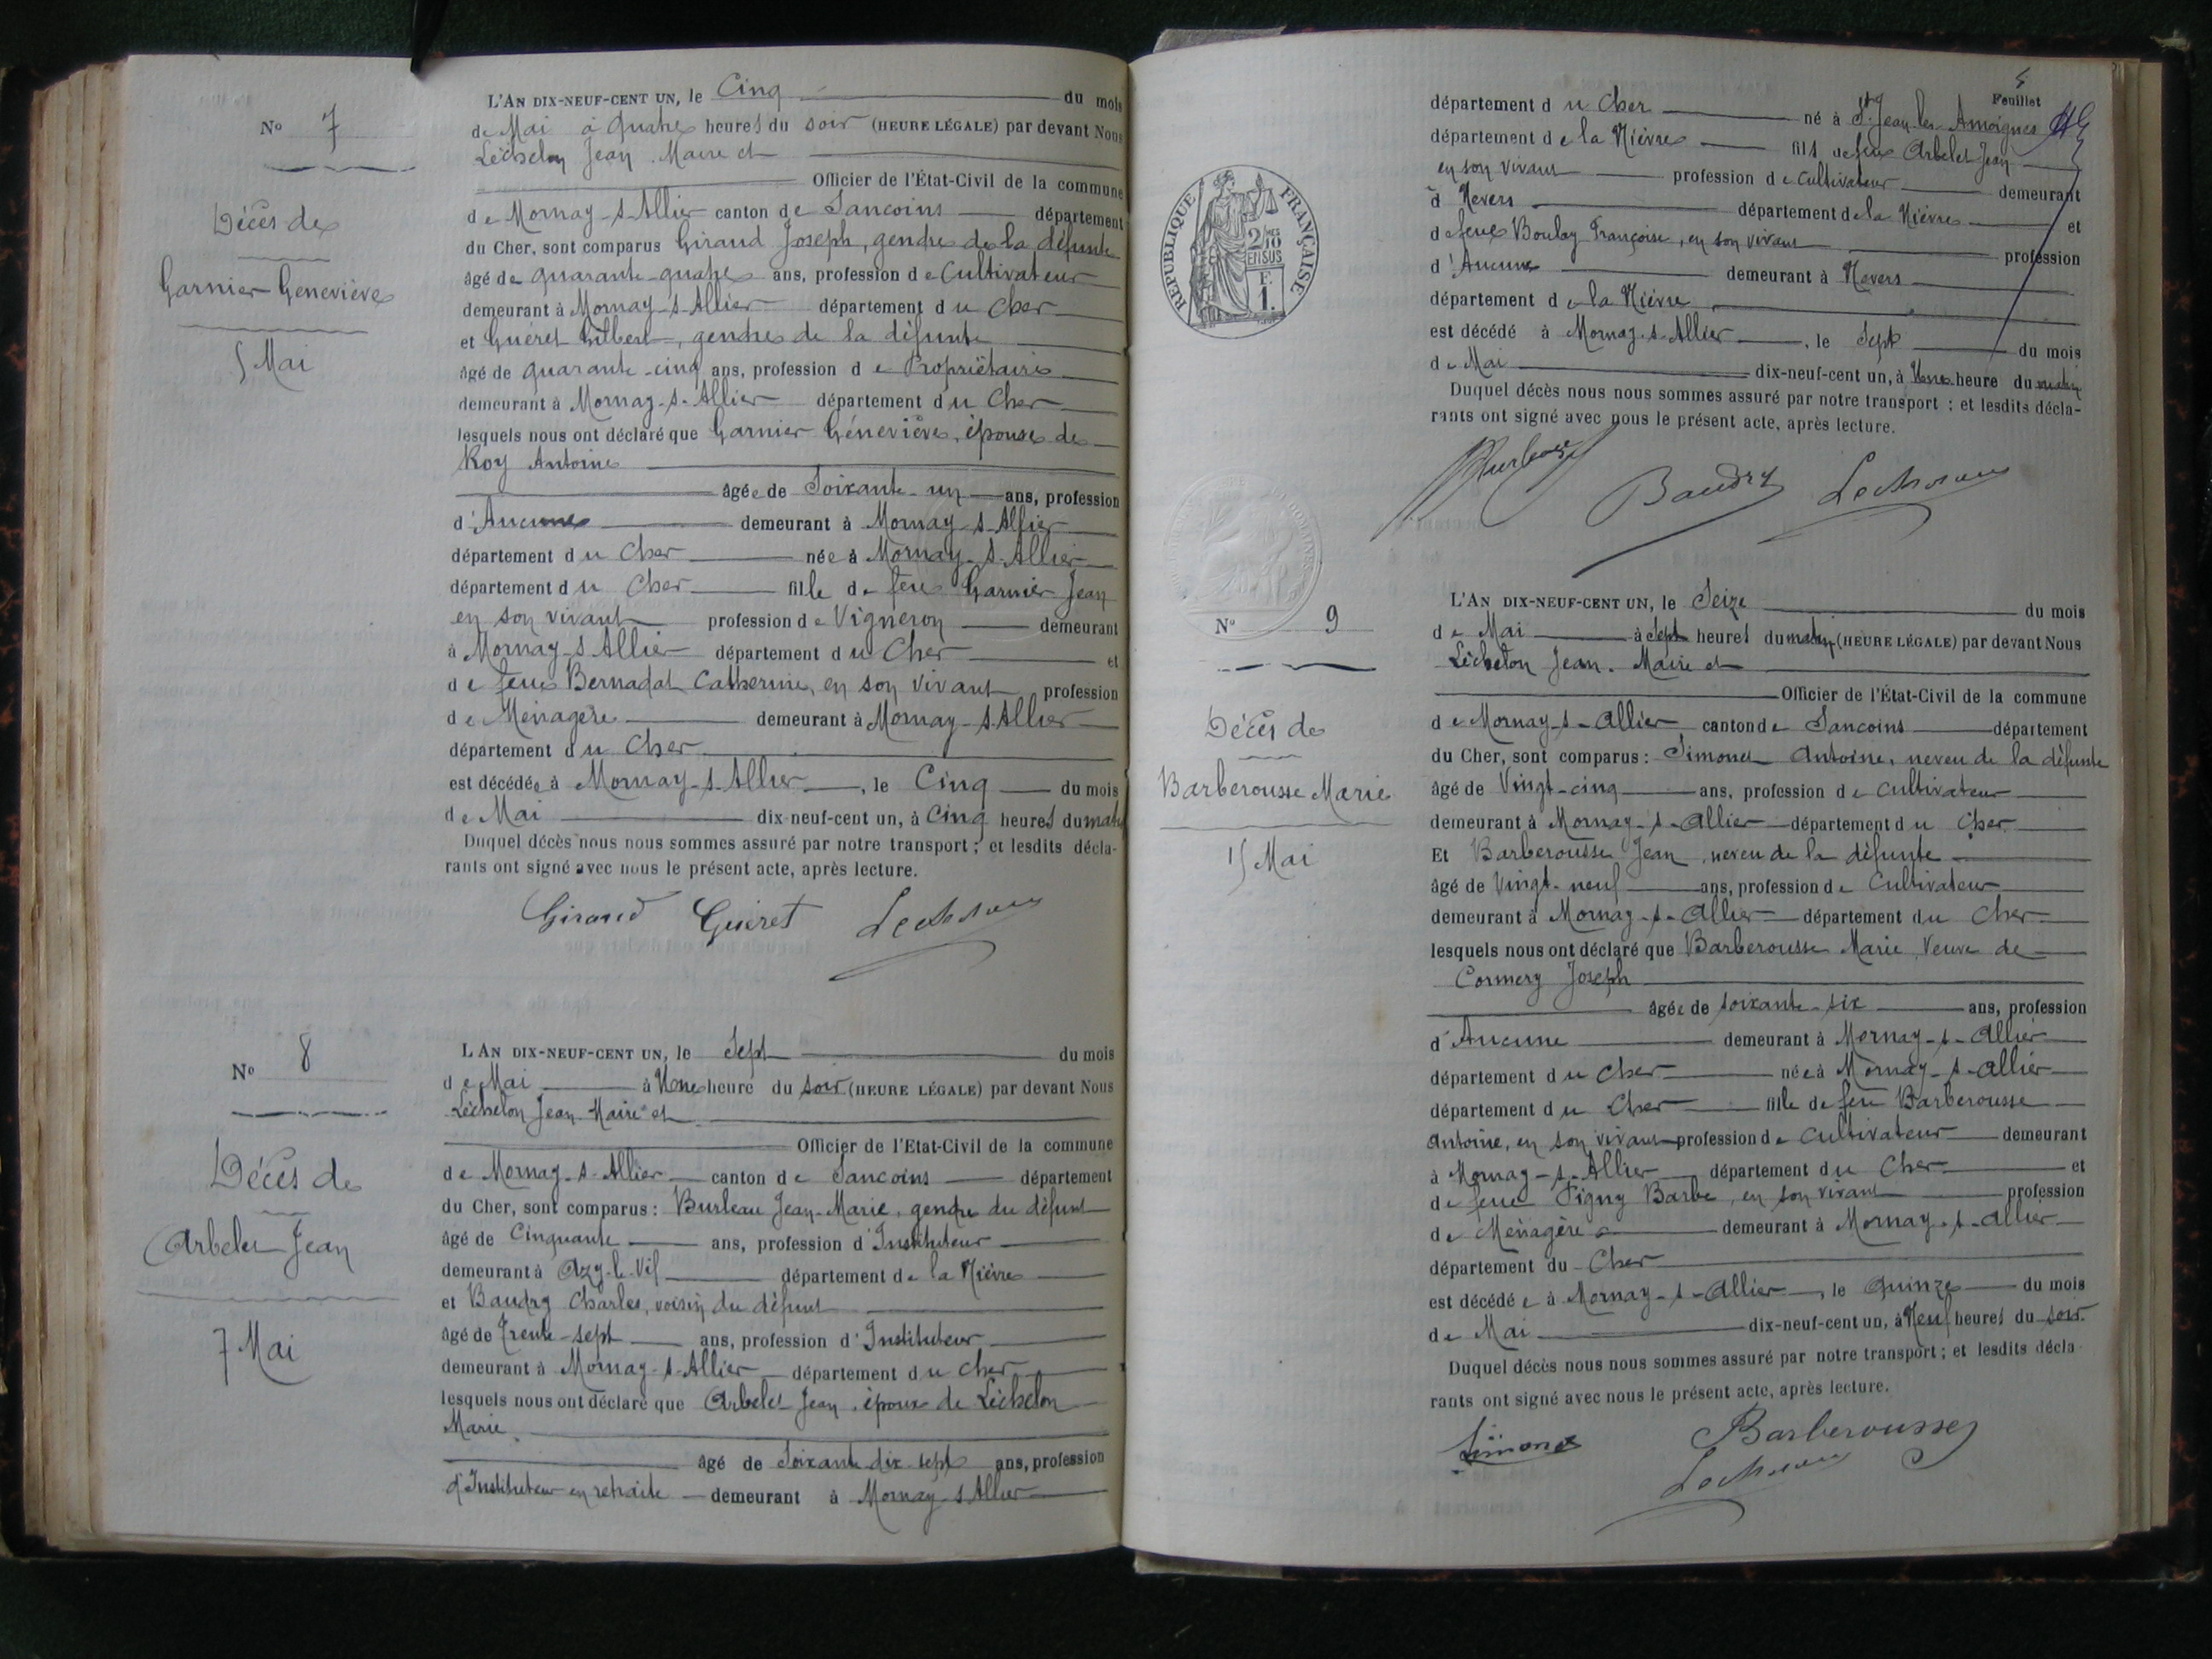 N° 7
Décès de
Garnier Geneviève
5 Mai
L'AN DIX-NEUF-CENT UN, le Cinq du mois
de Mai à Quatre heures du soir (HEURE LÉGALE) par devant Nous
Léchelon Jean. Maire et
Officier de l'État-Civil de la commune
de Mornay-s-Allier canton de Sancoins département
du Cher, sont comparus Giraud Joseph, gendre de la défunte
âgé de quarante-quatre ans, profession de Cultivateur
demeurant à Mornay-s-Allier département du Cher
et Guéret Gilbert, gendre de la défunte
âgé de quarante-cinq ans, profession de Propriétaire
demeurant à Mornay-s-Allier département du Cher
lesquels nous ont déclaré que Garnier Géneviève, épouse de
Roy Antoine
âgée de Soixante-un ans, profession
d'Aucune demeurant à Mornay-s-Allier
département du Cher née à Mornay-s-Allier
département du Cher fille de feu Garnier Jean
en son vivant profession de Vigneron demeurant
à Mornay-s-Allier département du Cher et
de feue Bernadat Catherine, en son vivant profession
de Ménagère demeurant à Mornay-s-Allier
département du Cher
est décédée à Mornay-s-Allier, le Cinq du mois
de Mai dix-neuf-cent un, à Cinq heures du matin
Duquel décès nous nous sommes assuré par notre transport ; et lesdits décla-
rants ont signé avec nous le présent acte, après lecture.
Giraud Guéret
N° 8
Décès de
Arbelet Jean
7 Mai
L'AN DIX-NEUF-CENT UN, le Sept du mois
de Mai à Une heure du soir (HEURE LÉGALE) par devant Nous
Léchelon Jean Maire et
Officier de l'Etat-Civil de la commune
de Mornay-s-Allier canton de Sancoins département
du Cher, sont comparus : Burleau Jean-Marie, gendre du défunt
âgé de Cinquante ans, profession d'Instituteur
demeurant à Azy-le-Vif département de la Nièvre
et Baudry Charles, voisin du défunt
âgé de Trente-sept ans, profession d'Instituteur
demeurant à Mornay-s-Allier département du Cher
lesquels nous ont déclaré que Arbelet Jean, époux de Léchelon
Marie.
âgé de Soixante-dix-sept ans, profession
d'Instituteur en retraite demeurant à Mornay-s-Allier
5
Feuillet
département du Cher né à St Jean-les-Amoignes
département de la Nièvre fils de feu Arbelet Jean
en son vivant profession de Cultivateur demeurant
à Nevers département de la Nièvre et
de feue Boulay Françoise, en son vivant profession
d'Aucune demeurant à Nevers
département de la Nièvre
est décédé à Mornay-s-Allier, le Sept du mois
de Mai dix-neuf-cent un, à Une heure du matin
Duquel décès nous nous sommes assuré par notre transport ; et lesdits décla-
rants ont signé avec nous le présent acte, après lecture.
Baudry
RÉPUBLIQUE FRANÇAISE
2/10 EN SUS
F.
1.
N° 9
Décès de
Barberousse Marie
15 Mai
L'AN DIX-NEUF-CENT UN, le Seize du mois
de Mai à Sept heures du matin (HEURE LÉGALE) par devant Nous
Léchelon Jean. Maire et
Officier de l'État-Civil de la commune
de Mornay-s-Allier canton de Sancoins département
du Cher, sont comparus : Simonet Antoine, neveu de la défunte
âgé de Vingt-cinq ans, profession de cultivateur
demeurant à Mornay-s-Allier département du Cher
Et Barberousse Jean, neveu de la défunte
âgé de Vingt-neuf ans, profession de Cultivateur
demeurant à Mornay-s-Allier département du Cher
lesquels nous ont déclaré que Barberousse Marie Veuve de
Cormery Joseph
âgée de soixante-six ans, profession
d'Aucune demeurant à Mornay-s-Allier
département du Cher née à Mornay-s-Allier
département du Cher fille de feu Barberousse
Antoine, en son vivant profession de Cultivateur demeurant
à Mornay-s-Allier département du Cher et
de feue Figny Barbe, en son vivant profession
de Ménagère demeurant à Mornay-s-Allier
département du Cher
est décédée à Mornay-s-Allier, le Quinze du mois
de Mai dix-neuf-cent un, à Neuf heures du soir.
Duquel décès nous nous sommes assuré par notre transport ; et lesdits décla-
rants ont signé avec nous le présent acte, après lecture.
Simonet Barberousse